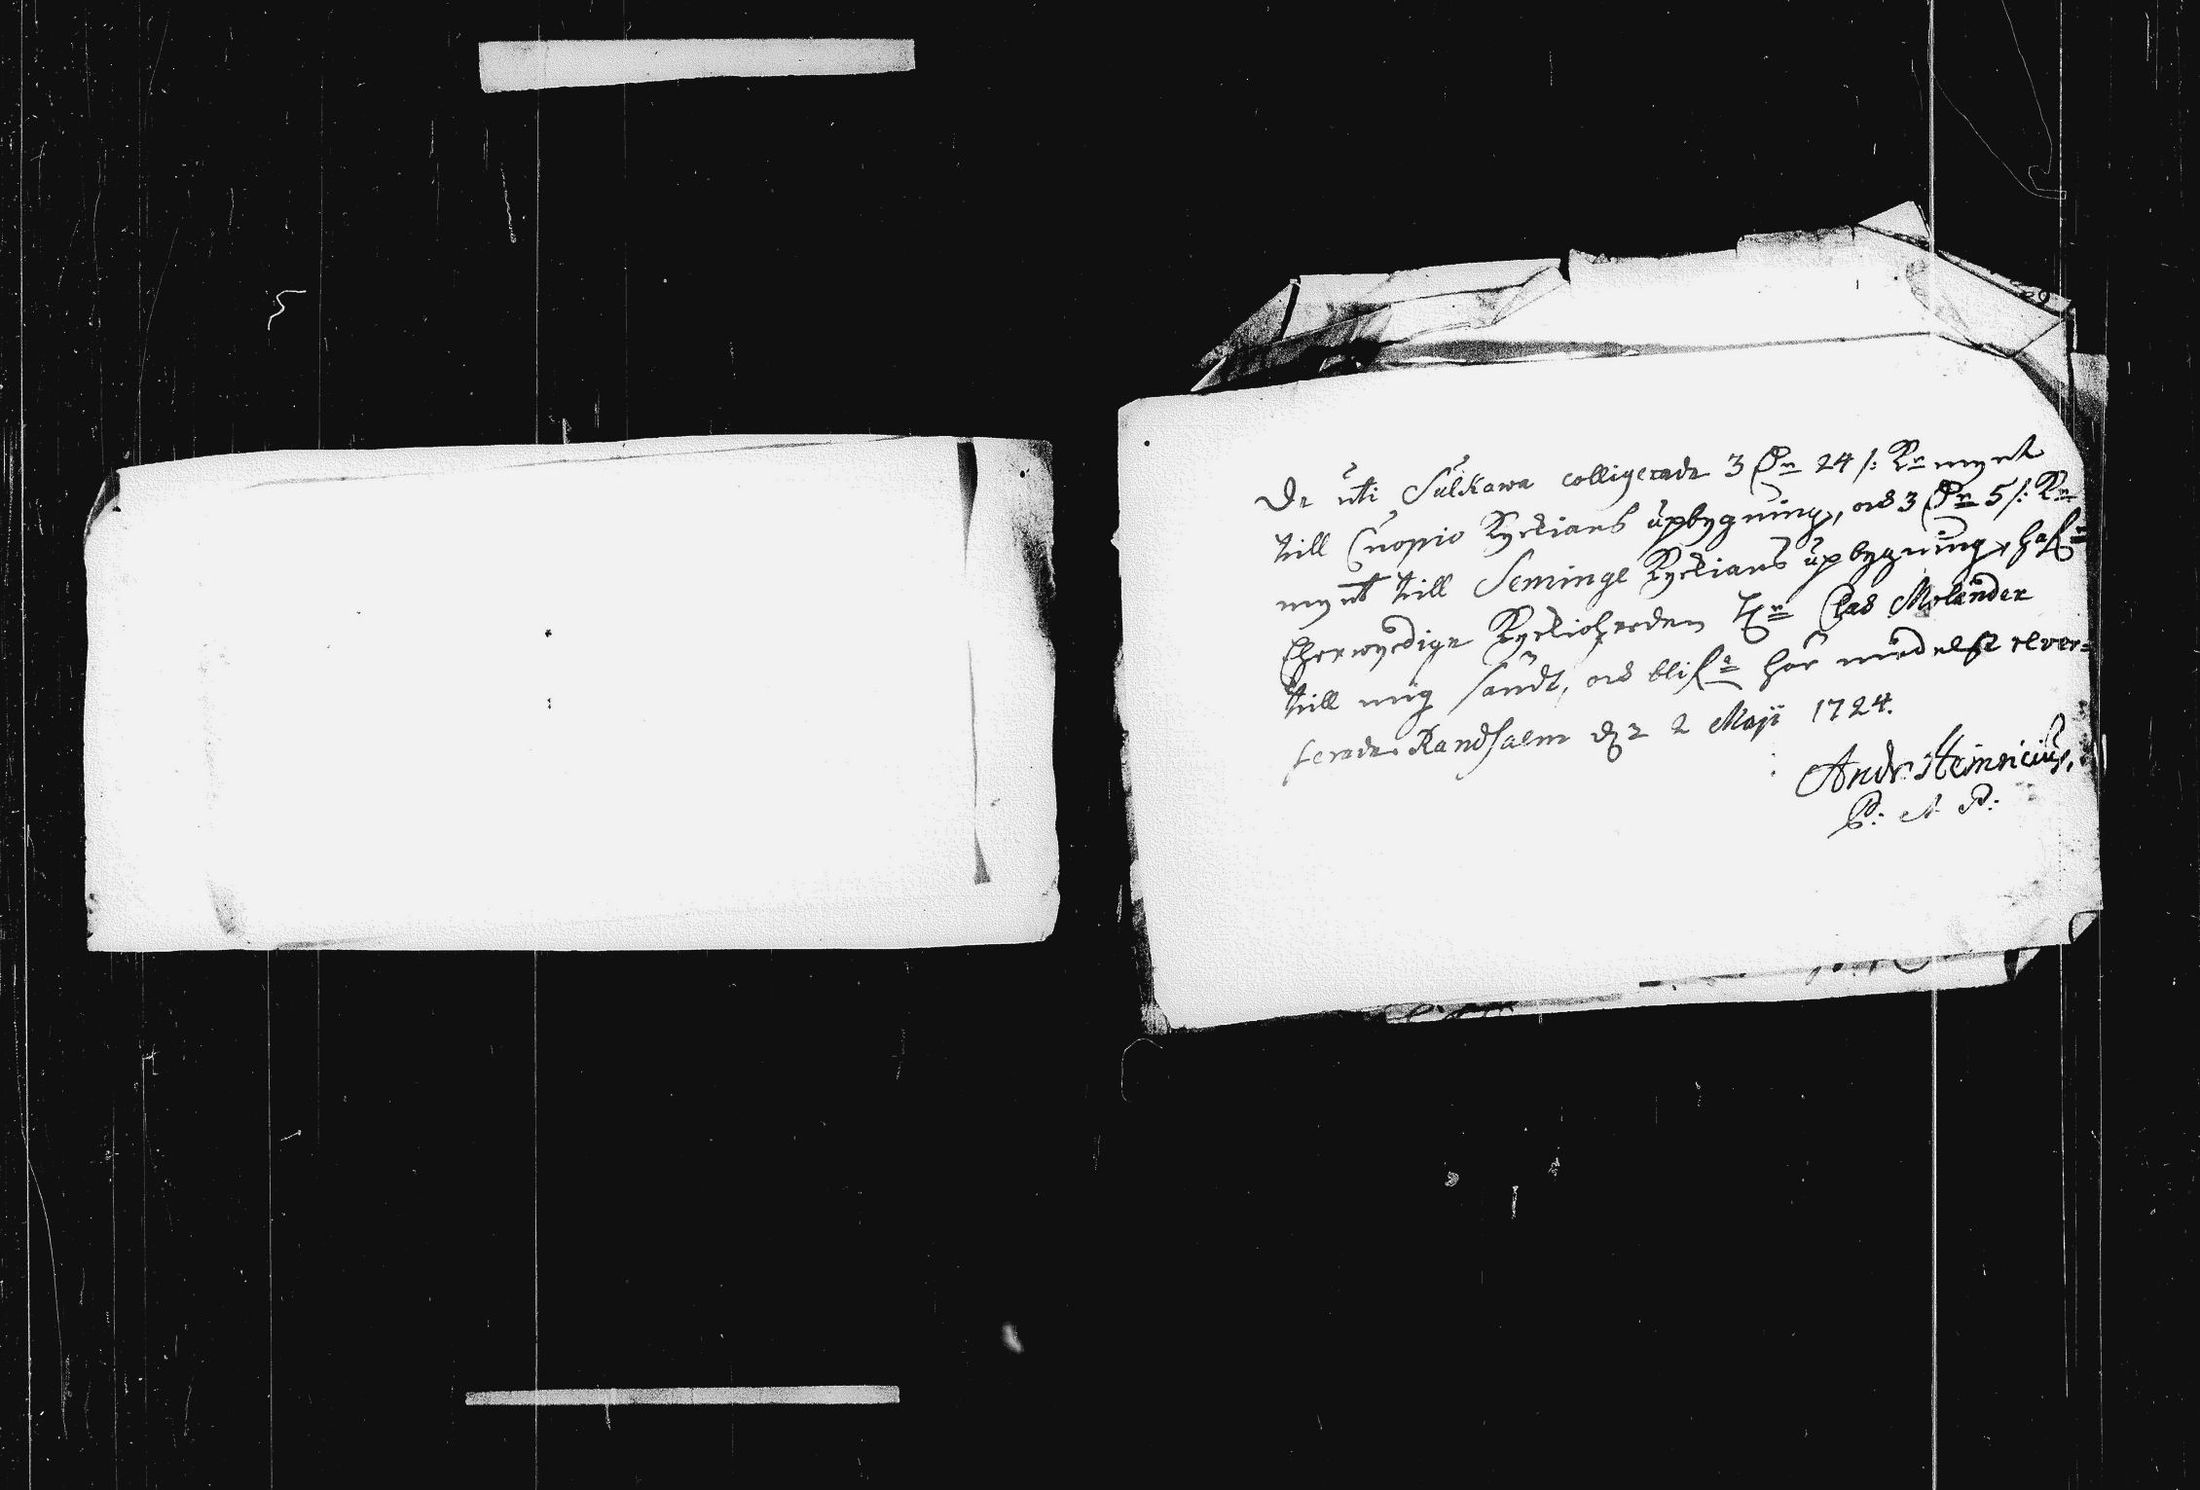 De uti Sulkawa colligerade 3 Dr 24 /: Kr mynt
till Cuopio Kyrkians upbygning, och 3 Dr 5 /: Kr
mynt till Seminge Kyrkians upbygning, hafr
Ehrewyrdige Kyrkioherden Hr Clas Molander
till mig sändt, och blifr här medelst rever=
serade. Randsalm d. 2 Maji 1724.
Andr. Heinricius,
P: A P: